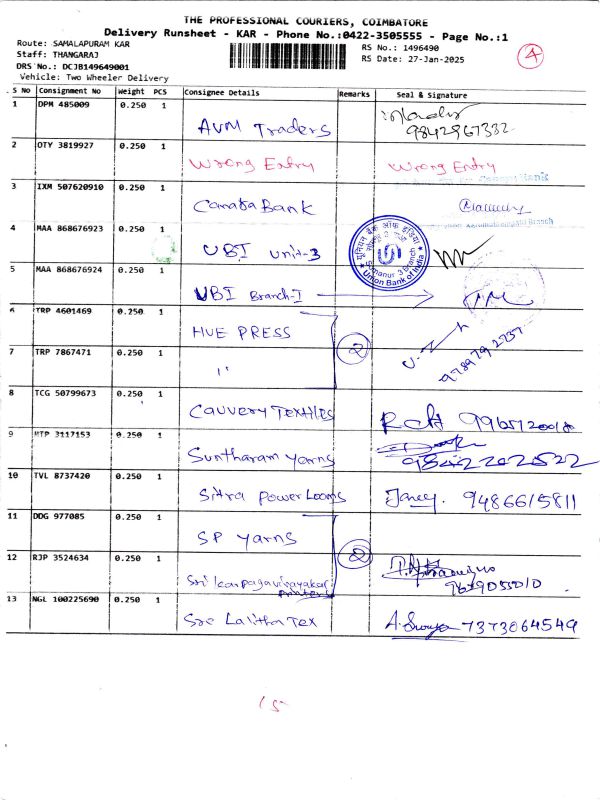 THE PROFESSIONAL COURIERS, COIMBATORE
Delivery Runsheet - KAR - Phone No.:0422-3505555 - Page No.:1
Route: SAMALAPURAM KAR
Staff: THANGARAJ
DRS No.: DCJB149649001
Vehicle: Two Wheeler Delivery
RS No.: 1496490
RS Date: 27-Jan-2025
4
S No Consignment No Weight PCS Consignee Details Remarks Seal & Signature
1 DPM 485009 0.250 1 AVM Traders
9842967332
2 OTY 3819927 0.250 1 Wrong Entry Wrong Entry
3 IXM 507620910 0.250 1 Canara Bank
4 MAA 868676923 0.250 1 UBI Unit-3
यूनियन बैंक ऑफ इंडिया
Somanur 3 Branch
Union Bank of India
5 MAA 868676924 0.250 1 UBI Branch-I
6 TRP 4601469 0.250 1 HUE PRESS
2
7 TRP 7867471 0.250 1 "
978979 2737
8 TCG 50799673 0.250 1 Cauvery Textiles
9 MTP 3117153 0.250 1 Suntharam yarns
9842202522
10 TVL 8737420 0.250 1 Sitra Power Looms
9486615811
11 DDG 977085 0.250 1 SP Yarns
2
12 RJP 3524634 0.250 1 Sri Karpagavinayakar
Printers
13 NGL 100225690 0.250 1 Sre Lalitha Tex A. Surya 7373064549
15